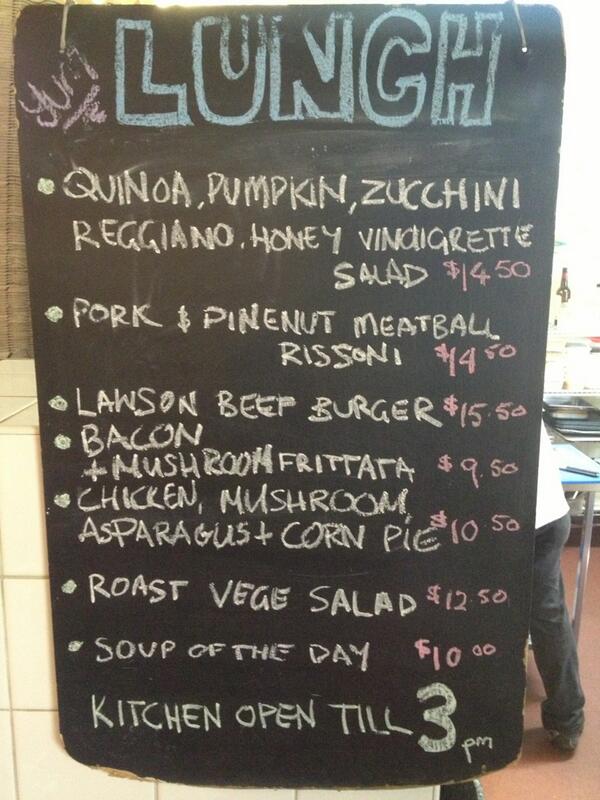 YUM LUNCH
QUINOA, PUMPKIN, ZUCCHINI
REGGIANO, HONEY VINAIGRETTE
SALAD $14.50
PORK & PINENUT MEATBALL
RISSONI $14.50
LAWSON BEEF BURGER $15.50
BACON
+ MUSHROOM FRITTATA $9.50
CHICKEN, MUSHROOM,
ASPARAGUS + CORN PIE $10.50
ROAST VEGE SALAD $12.50
SOUP OF THE DAY $10.00
KITCHEN OPEN TILL 3 pm